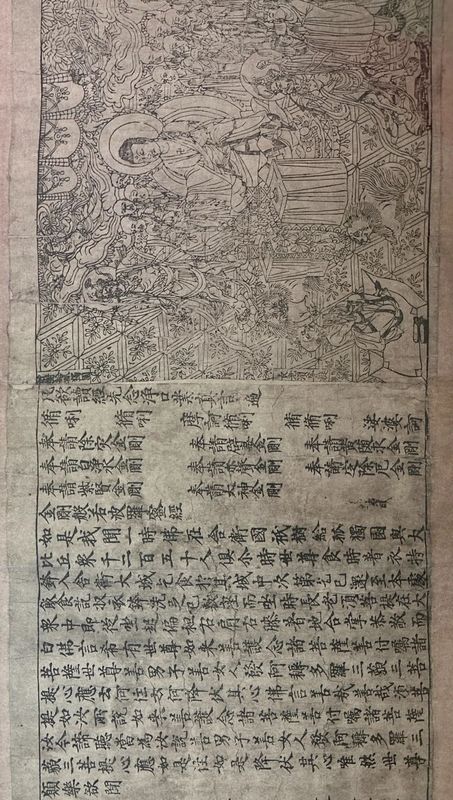 凡欲讀經先念淨口業真言遍
脩唎 脩唎 摩訶脩唎 脩脩唎 娑婆訶
奉請除災金剛 奉請辟毒金剛 奉請黃隨求金剛
奉請白淨水金剛 奉請赤聲金剛 奉請定除厄金剛
奉請紫賢金剛 奉請大神金剛
金剛般若波羅蜜經
如是我聞一時佛在舍衛國祇樹給孤獨園與大
比丘眾千二百五十人俱尒時世尊食時著衣持
鉢入舍衛大城乞食於其城中次第乞已還至本處
飯食訖收衣鉢洗足已敷座而坐時長老須菩提在大
眾中即從坐起偏袒右肩右膝著地合掌恭敬而
白佛言希有世尊如來善護念諸菩薩善付囑諸
菩薩世尊善男子善女人發阿耨多羅三藐三菩
提心應云何住云何降伏其心佛言善哉善哉須菩
提如汝所說如來善護念諸菩薩善付囑諸菩薩
汝今諦聽當為汝說善男子善女人發阿耨多羅三
藐三菩提心應如是住如是降伏其心唯然世尊
願樂欲聞